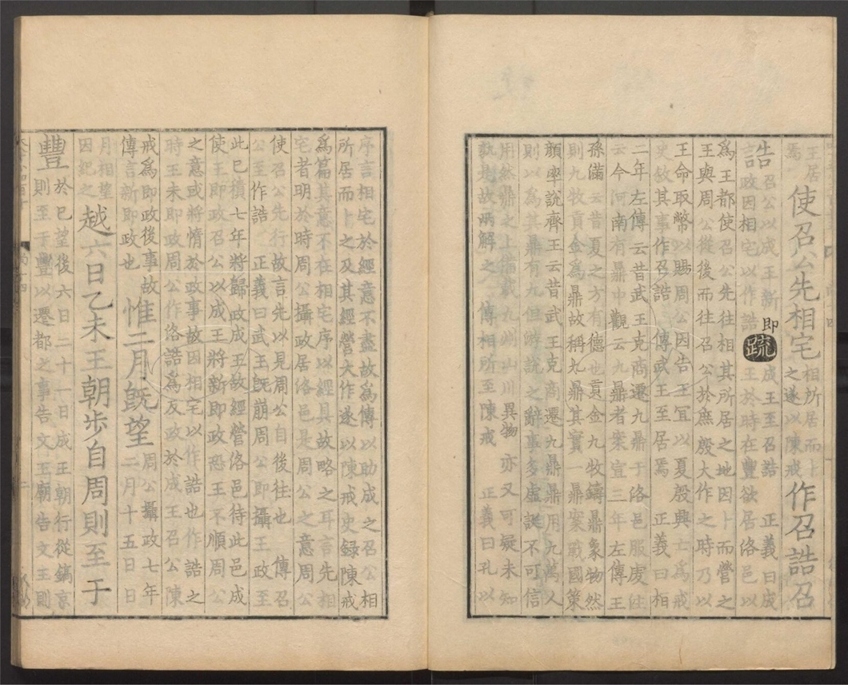 王居
焉
使召公先相宅
相所居而卜
之遂以陳戒
作召誥召
誥
召公以成王新即
政因相宅以作誥
疏
成王至召誥　正義曰成
王於時在豐欲居洛邑以
為王都使召公先往相其所居之地因卜而營之
王與周公從後而往召公於庶殷大作之時乃以
王命取幣以賜周公因告王宜以夏殷興亡為戒
史敘其事作召誥　傳武王至居焉　正義曰相
二年左傳云昔武王克商遷九鼎于洛邑服虔注
云今河南有鼎中觀云九鼎者案宣三年左傳王
孫滿云昔夏之方有德也貢金九牧鑄鼎象物然
則九牧貢金為鼎故稱九鼎其實一鼎案戰國策
顏率說齊王云昔武王克商遷九鼎鼎用九萬人
則以為其鼎有九但游說之辭事多虛誕不可信
用然鼎之上備載九州山川異物亦又可疑未知
孰是故兩解之　傳相所至陳戒　正義曰孔以
序言相宅於經意不盡故為傳以助成之召公相
所居而卜之及其經營大作遂以陳戒史錄陳戒
為篇其意不在相宅序以經具故略之耳言先相
宅者明於時周公攝政居洛邑是周公之意周公
使召公先行故言先以見周公自後往也　傳召
公至作誥　正義曰武王既崩周公即攝王政至
此已積七年將歸政成王故經營洛邑待此邑成
使王即政召公以成王將新即政恐王不順周公
之意或將惰於政事故因相宅以作誥也作誥之
時王未即政周公作洛誥為反政於成王召公陳
戒為即政後事故
傳言新即政也
惟二月既望
周公攝政七年
二月十五日日
月相望
因紀之
越六日乙未王朝步自周則至于
豐
於已望後六日二十一日成王朝行從鎬京
則至于豐以遷都之事告文王廟告文王則